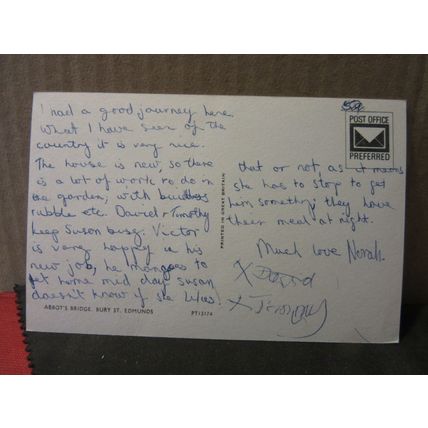 I had a good journey here
What I have seen of the
country it is very nice.
The house is new, so there
is a lot of work to do in
the garden, with builders
rubble etc. David + Timothy
keep Susan busy. Victor
is very happy in his
new job, he manages to
get home mid day Susan
doesn't know if she likes
that or not, as it means
she has to stop to get
him something, they have
their meal at night.
Much love Norah.
X David
X Timothy
POST OFFICE
PREFERRED
PRINTED IN GREAT BRITAIN
ABBOT'S BRIDGE, BURY ST. EDMUNDS
PT15174